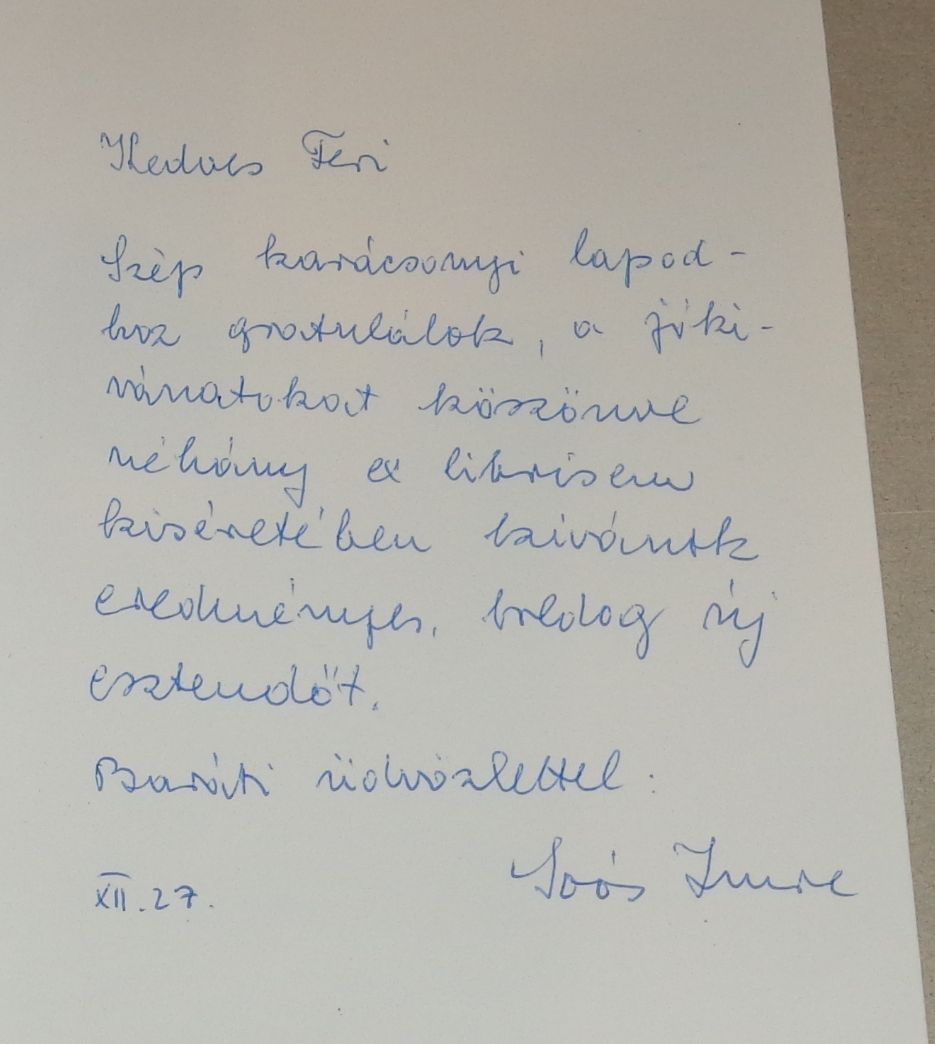 Kedves Feri
Szép karácsonyi lapod-
hoz gratulálok, a jóki-
vánatokat köszönve
néhány ex librisem
kiséretében kivánok
eredményes, boldog új
esztendőt.
Baráti üdvözlettel:
Soós Imre
XII. 27.